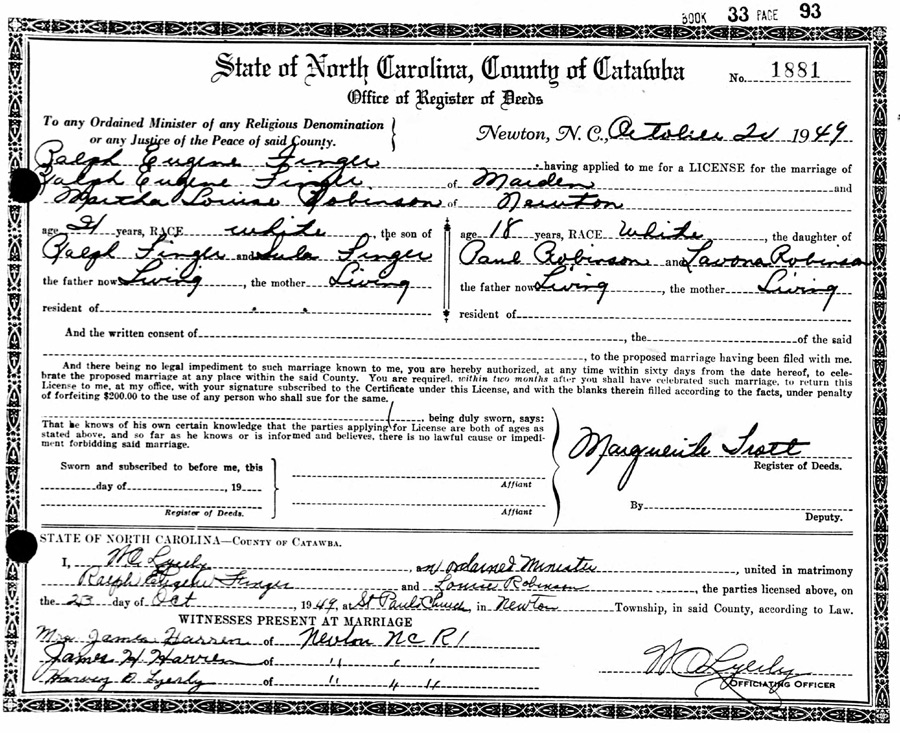 BOOK 33 PAGE 93
State of North Carolina, County of Catawba
No. 1881
Office of Register of Deeds
To any Ordained Minister of any Religious Denomination
or any Justice of the Peace of said County.
Newton, N. C., October 1949
Ralph Eugene Finger having applied to me for a LICENSE for the marriage of
Ralph Eugene Finger of Maiden and
Martha Louise Robinson of Newton
age 21 years, RACE white, the son of
Ralph Finger and Lula Finger
the father now Living, the mother Living
resident of
age 18 years, RACE White, the daughter of
Paul Robinson and Lavona Robinson
the father now Living, the mother Living
resident of
And the written consent of , the of the said
, to the proposed marriage having been filed with me.
And there being no legal impediment to such marriage known to me, you are hereby authorized, at any time within sixty days from the date hereof, to cele-
brate the proposed marriage at any place within the said County. You are required, within two months after you shall have celebrated such marriage, to return this
License to me, at my office, with your signature subscribed to the Certificate under this License, and with the blanks therein filled according to the facts, under penalty
of forfeiting $200.00 to the use of any person who shall sue for the same.
being duly sworn, says:
That he knows of his own certain knowledge that the parties applying for License are both of ages as
stated above, and so far as he knows or is informed and believes, there is no lawful cause or impedi-
ment forbidding said marriage.
Sworn and subscribed to before me, this
day of , 19
Register of Deeds.
Affiant
Affiant
Marguerite Trott
Register of Deeds.
By
Deputy.
STATE OF NORTH CAROLINA—COUNTY OF CATAWBA.
I, W C Lyerly, an ordained Minister, united in matrimony
Ralph Eugene Finger and Louise Robinson, the parties licensed above, on
the 23 day of Oct, 1949, at St Pauls Church, in Newton Township, in said County, according to Law.
WITNESSES PRESENT AT MARRIAGE
Mrs James Harren of Newton NC R1
James H Harren of " " "
Harvey D. Lyerly of " " "
W C Lyerly
OFFICIATING OFFICER